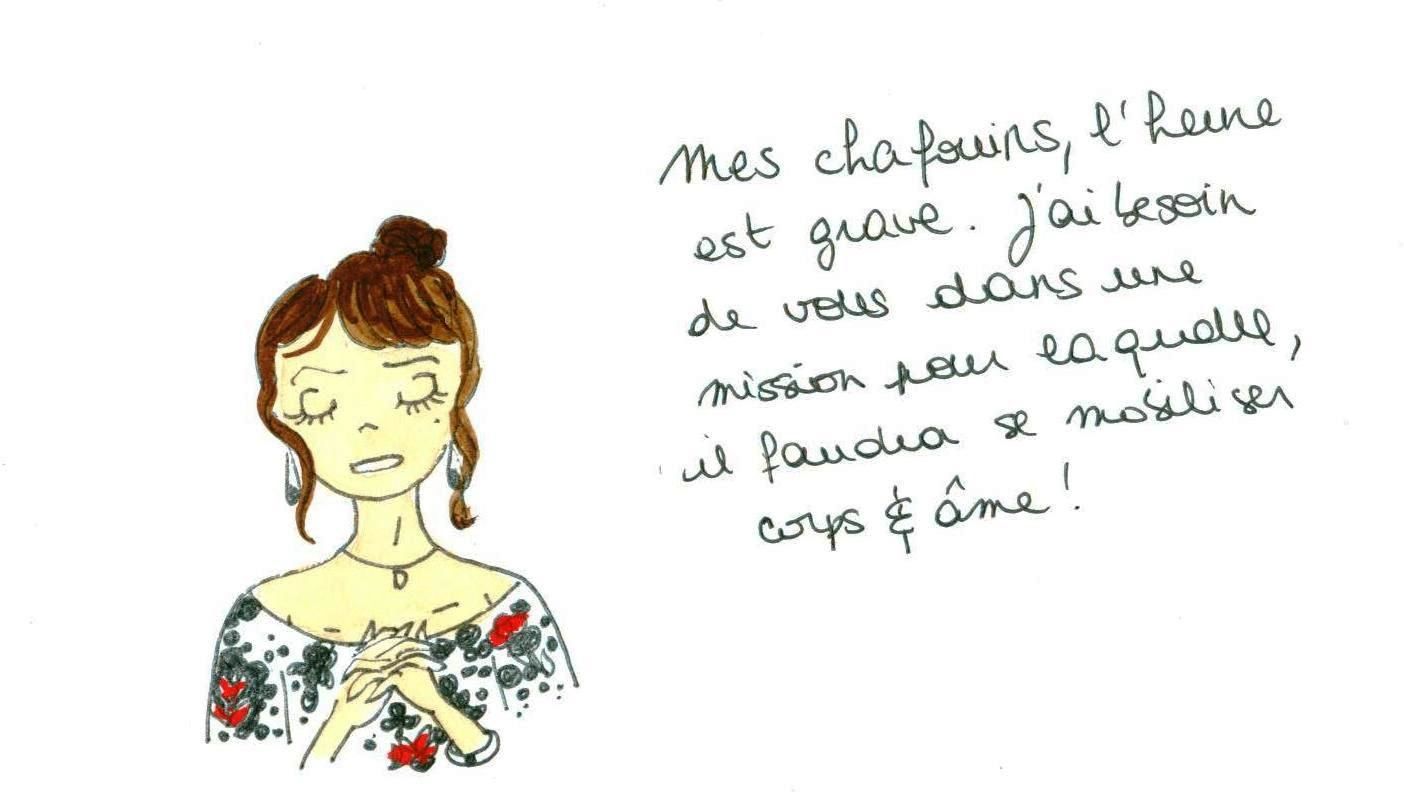 Mes chafouins, l'heure
est grave. J'ai besoin
de vous dans une
mission pour laquelle,
il faudra se mobiliser
corps & âme !
D